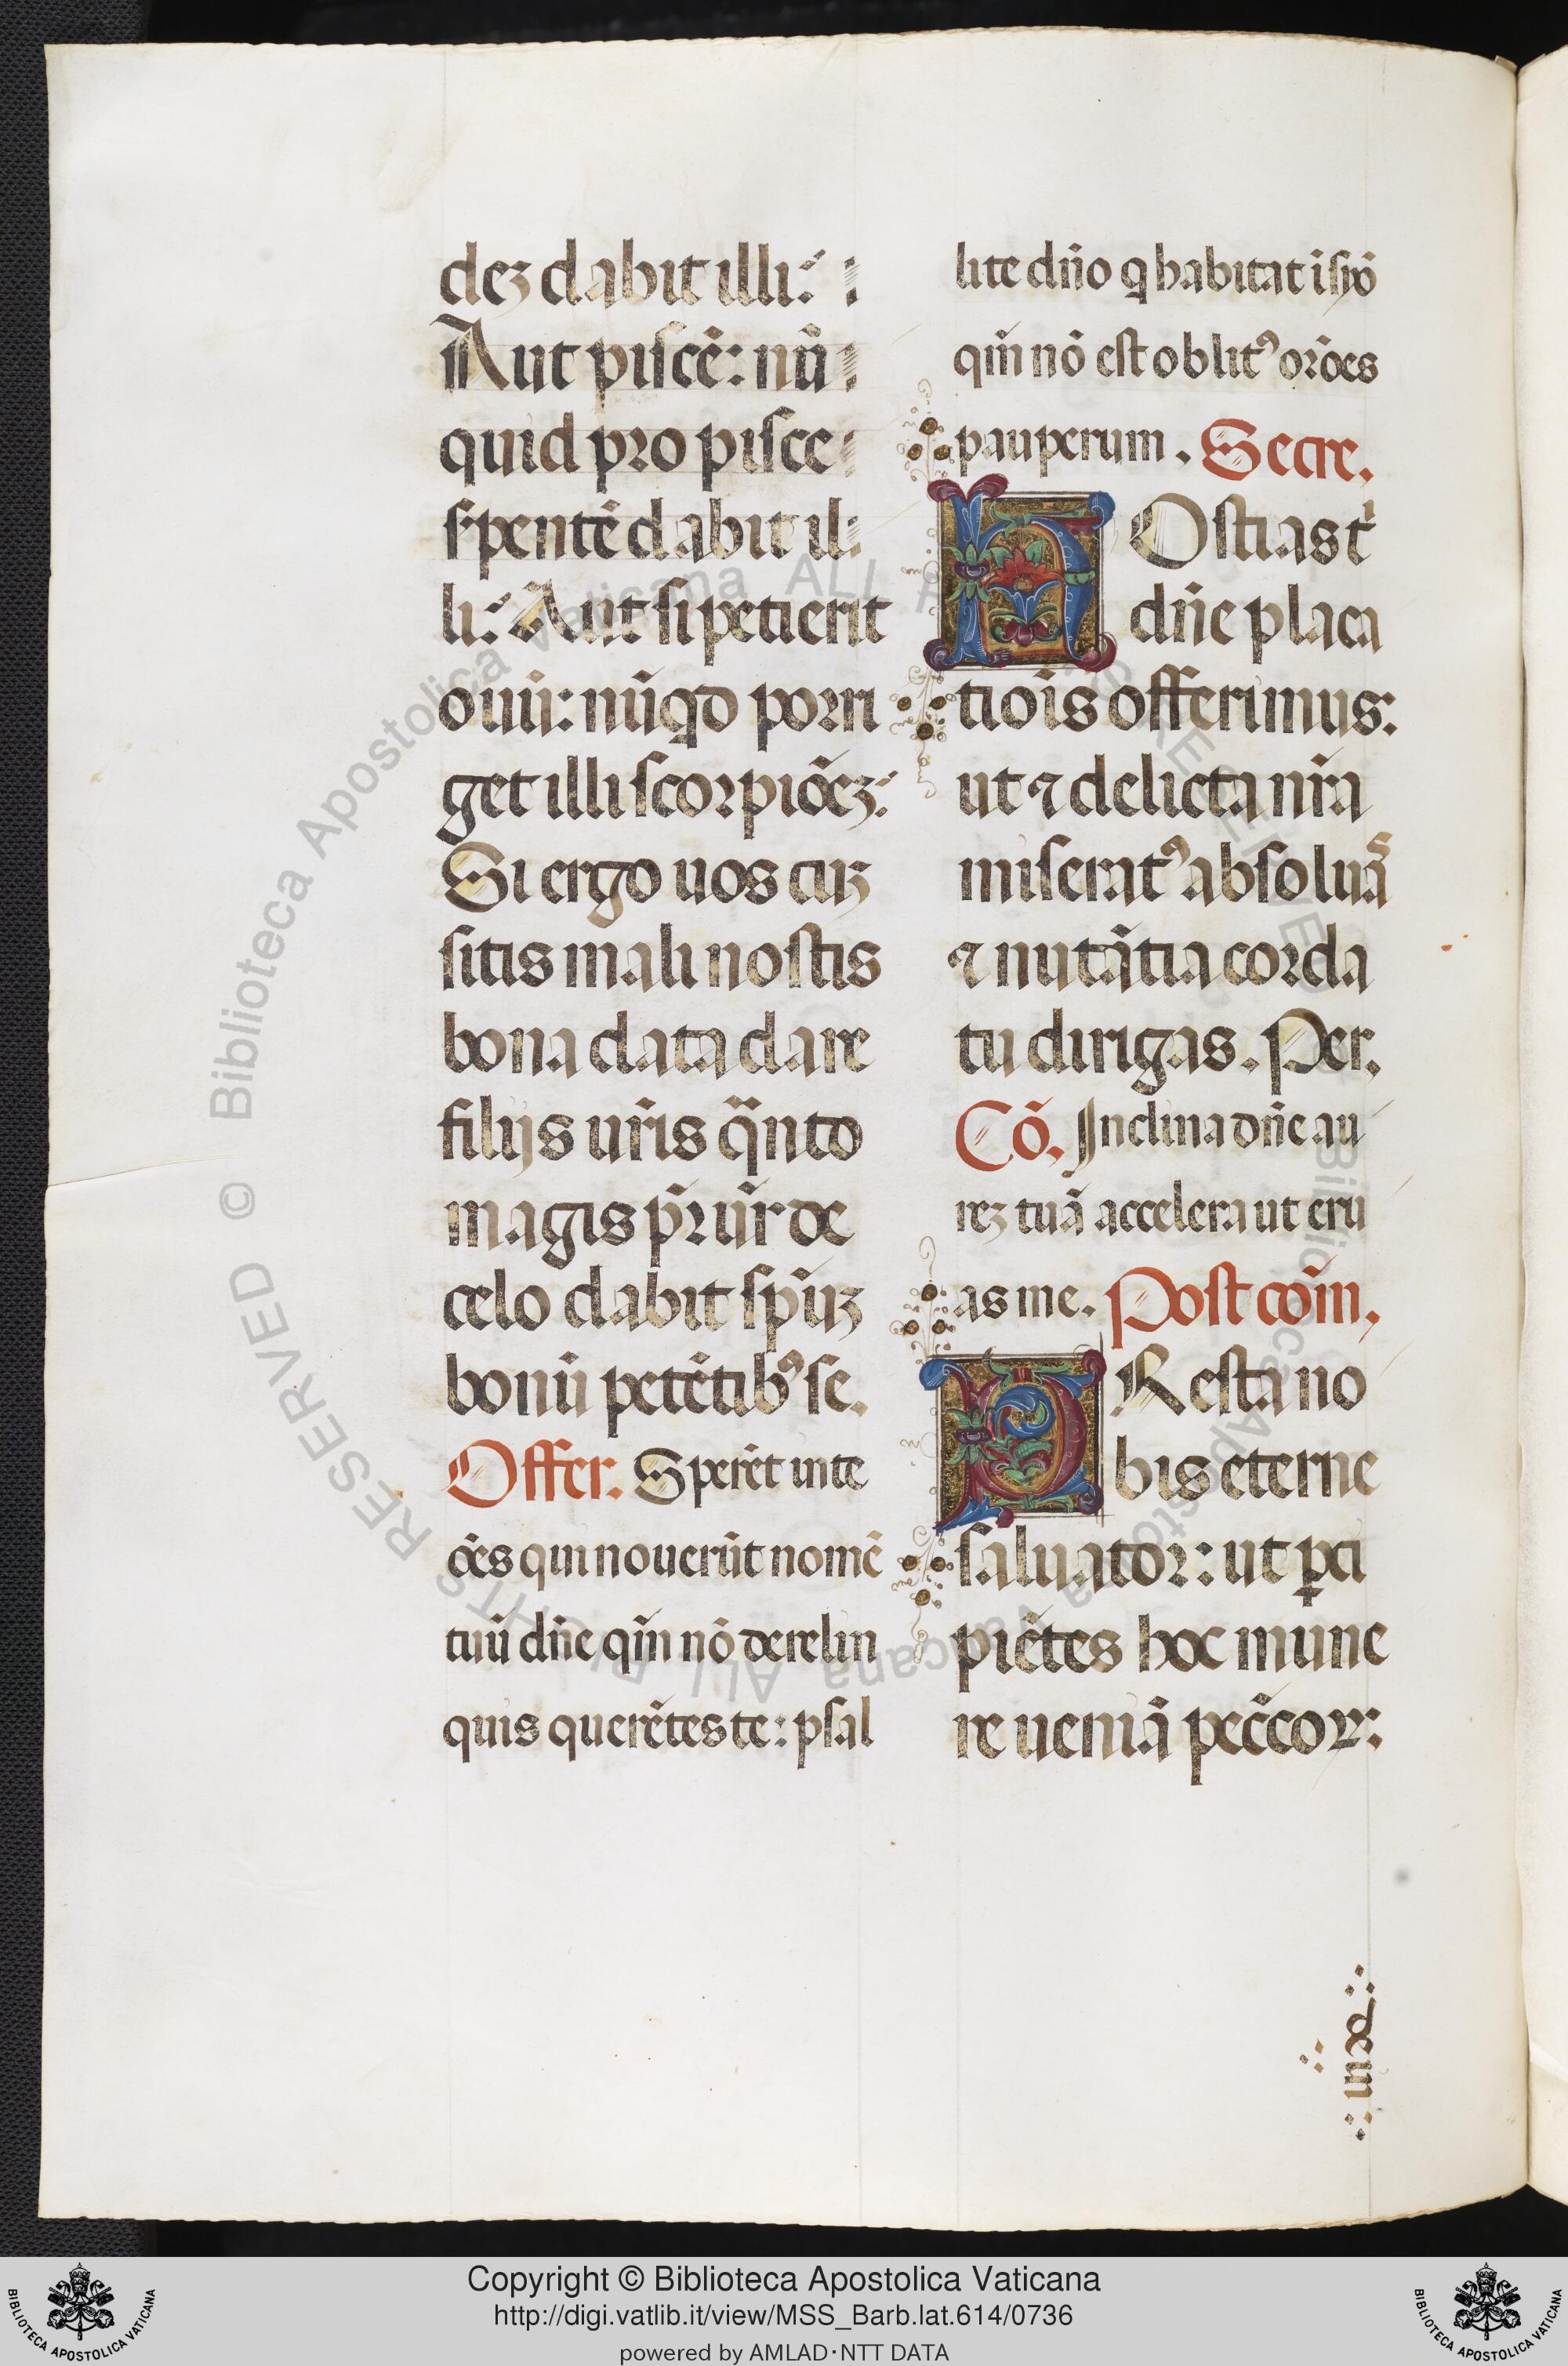 dez dabit illi:
Aut piscē: nū
quid pro pisce
ẜpentē dabit il
li: Aut si petierit
ouū: nūqd porri
get illi scorpiōez:
Si ergo uos cuz
sitis mali nostis
bona data dare
filijs ur̄is q̄nto
magis pr̄ ur̄ de
celo dabit spūz
bonū petētibꝰ se.
Offer. Sperēt in te
ōes qui nouerūt nomē
tuū dn̄e qm̄ nō derelin
quis querētes te: psal
lite dn̄o q habitat ī syō
qm̄ nō est oblitꝰ orōes
pauperum. Secre.
HOstias t
dn̄e placa
tiōis offerimus:
ut ⁊ delicta nr̄a
miseratꝰ absoluās
⁊ nutātia corda
tu dirigas. Per.
Cō. Inclina dn̄e au
rez tuā accelera ut eru
as me. Post cōm.
PResta no
bis eterne
saluator: ut ꝑci
piētes hoc mune
re ueniā pecc̄oꝝ:
Copyright © Biblioteca Apostolica Vaticana
http://digi.vatlib.it/view/MSS_Barb.lat.614/0736
powered by AMLAD·NTT DATA
BIBLIOTECA APOSTOLICA VATICANA
BIBLIOTECA APOSTOLICA VATICANA